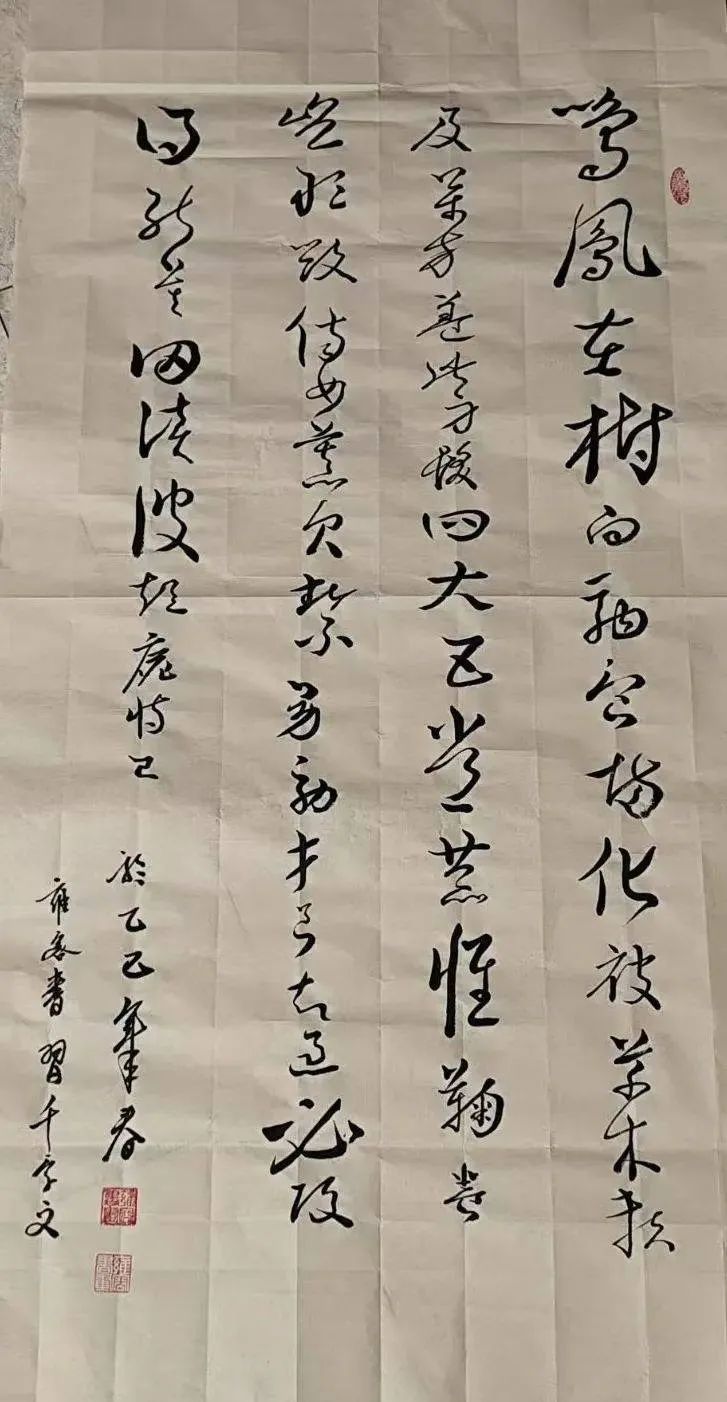 鳴鳳在樹白駒食場化被草木賴
及萬方蓋此身髮四大五常恭惟鞠養
豈敢毀傷女慕貞絜男效才良知過必改
得能莫罔談彼短靡恃己
於乙巳年春
雍容書習千字文